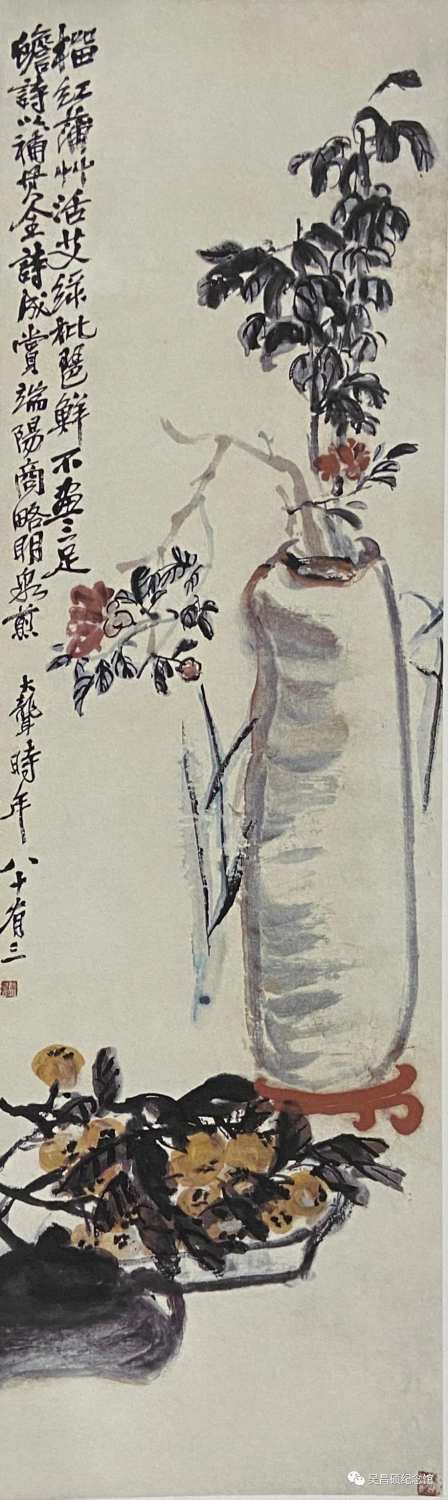 榴红蒲艸活艾绿枇琶鲜不画三足
蟾詩以補其全詩成賞端陽商略明泉煎
大聾時年八十有三
吴昌硕纪念馆